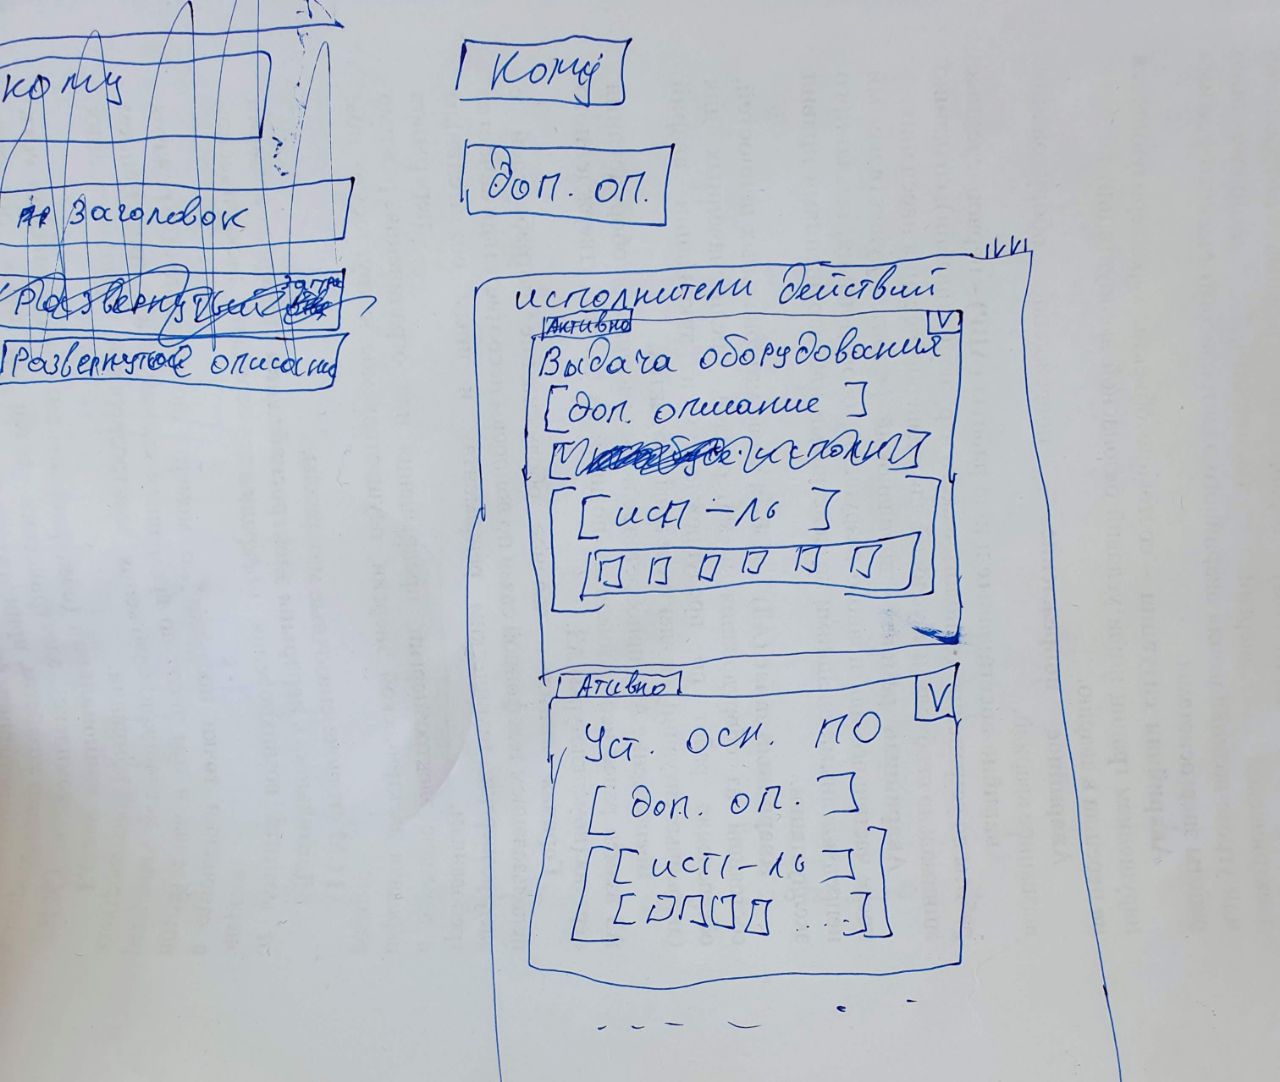 кому
Заголовок
Развернутый
Развернутое описание
Кому
Доп. оп.
исполнители действий
Активно
V
Выдача оборудования
[доп. описание]
[исп-ль]
Ативно
V
Уст. осн. ПО
[доп. оп.]
[исп-ль]
...